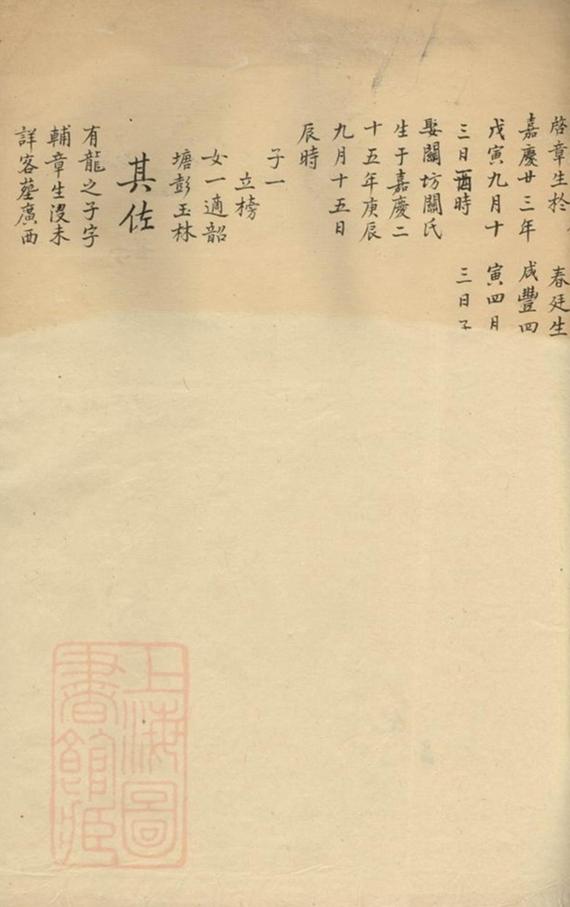 啓章生於
嘉慶廿三年
戊寅九月十
三日酉時
娶關坊關氏
生于嘉慶二
十五年庚辰
九月十五日
辰時
子一
立榜
女一適韶
塘彭玉林
其佐
有龍之子字
輔章生沒未
詳客墓廣西
春廷生
咸豐四
寅四月
三日
上海圖
書館藏